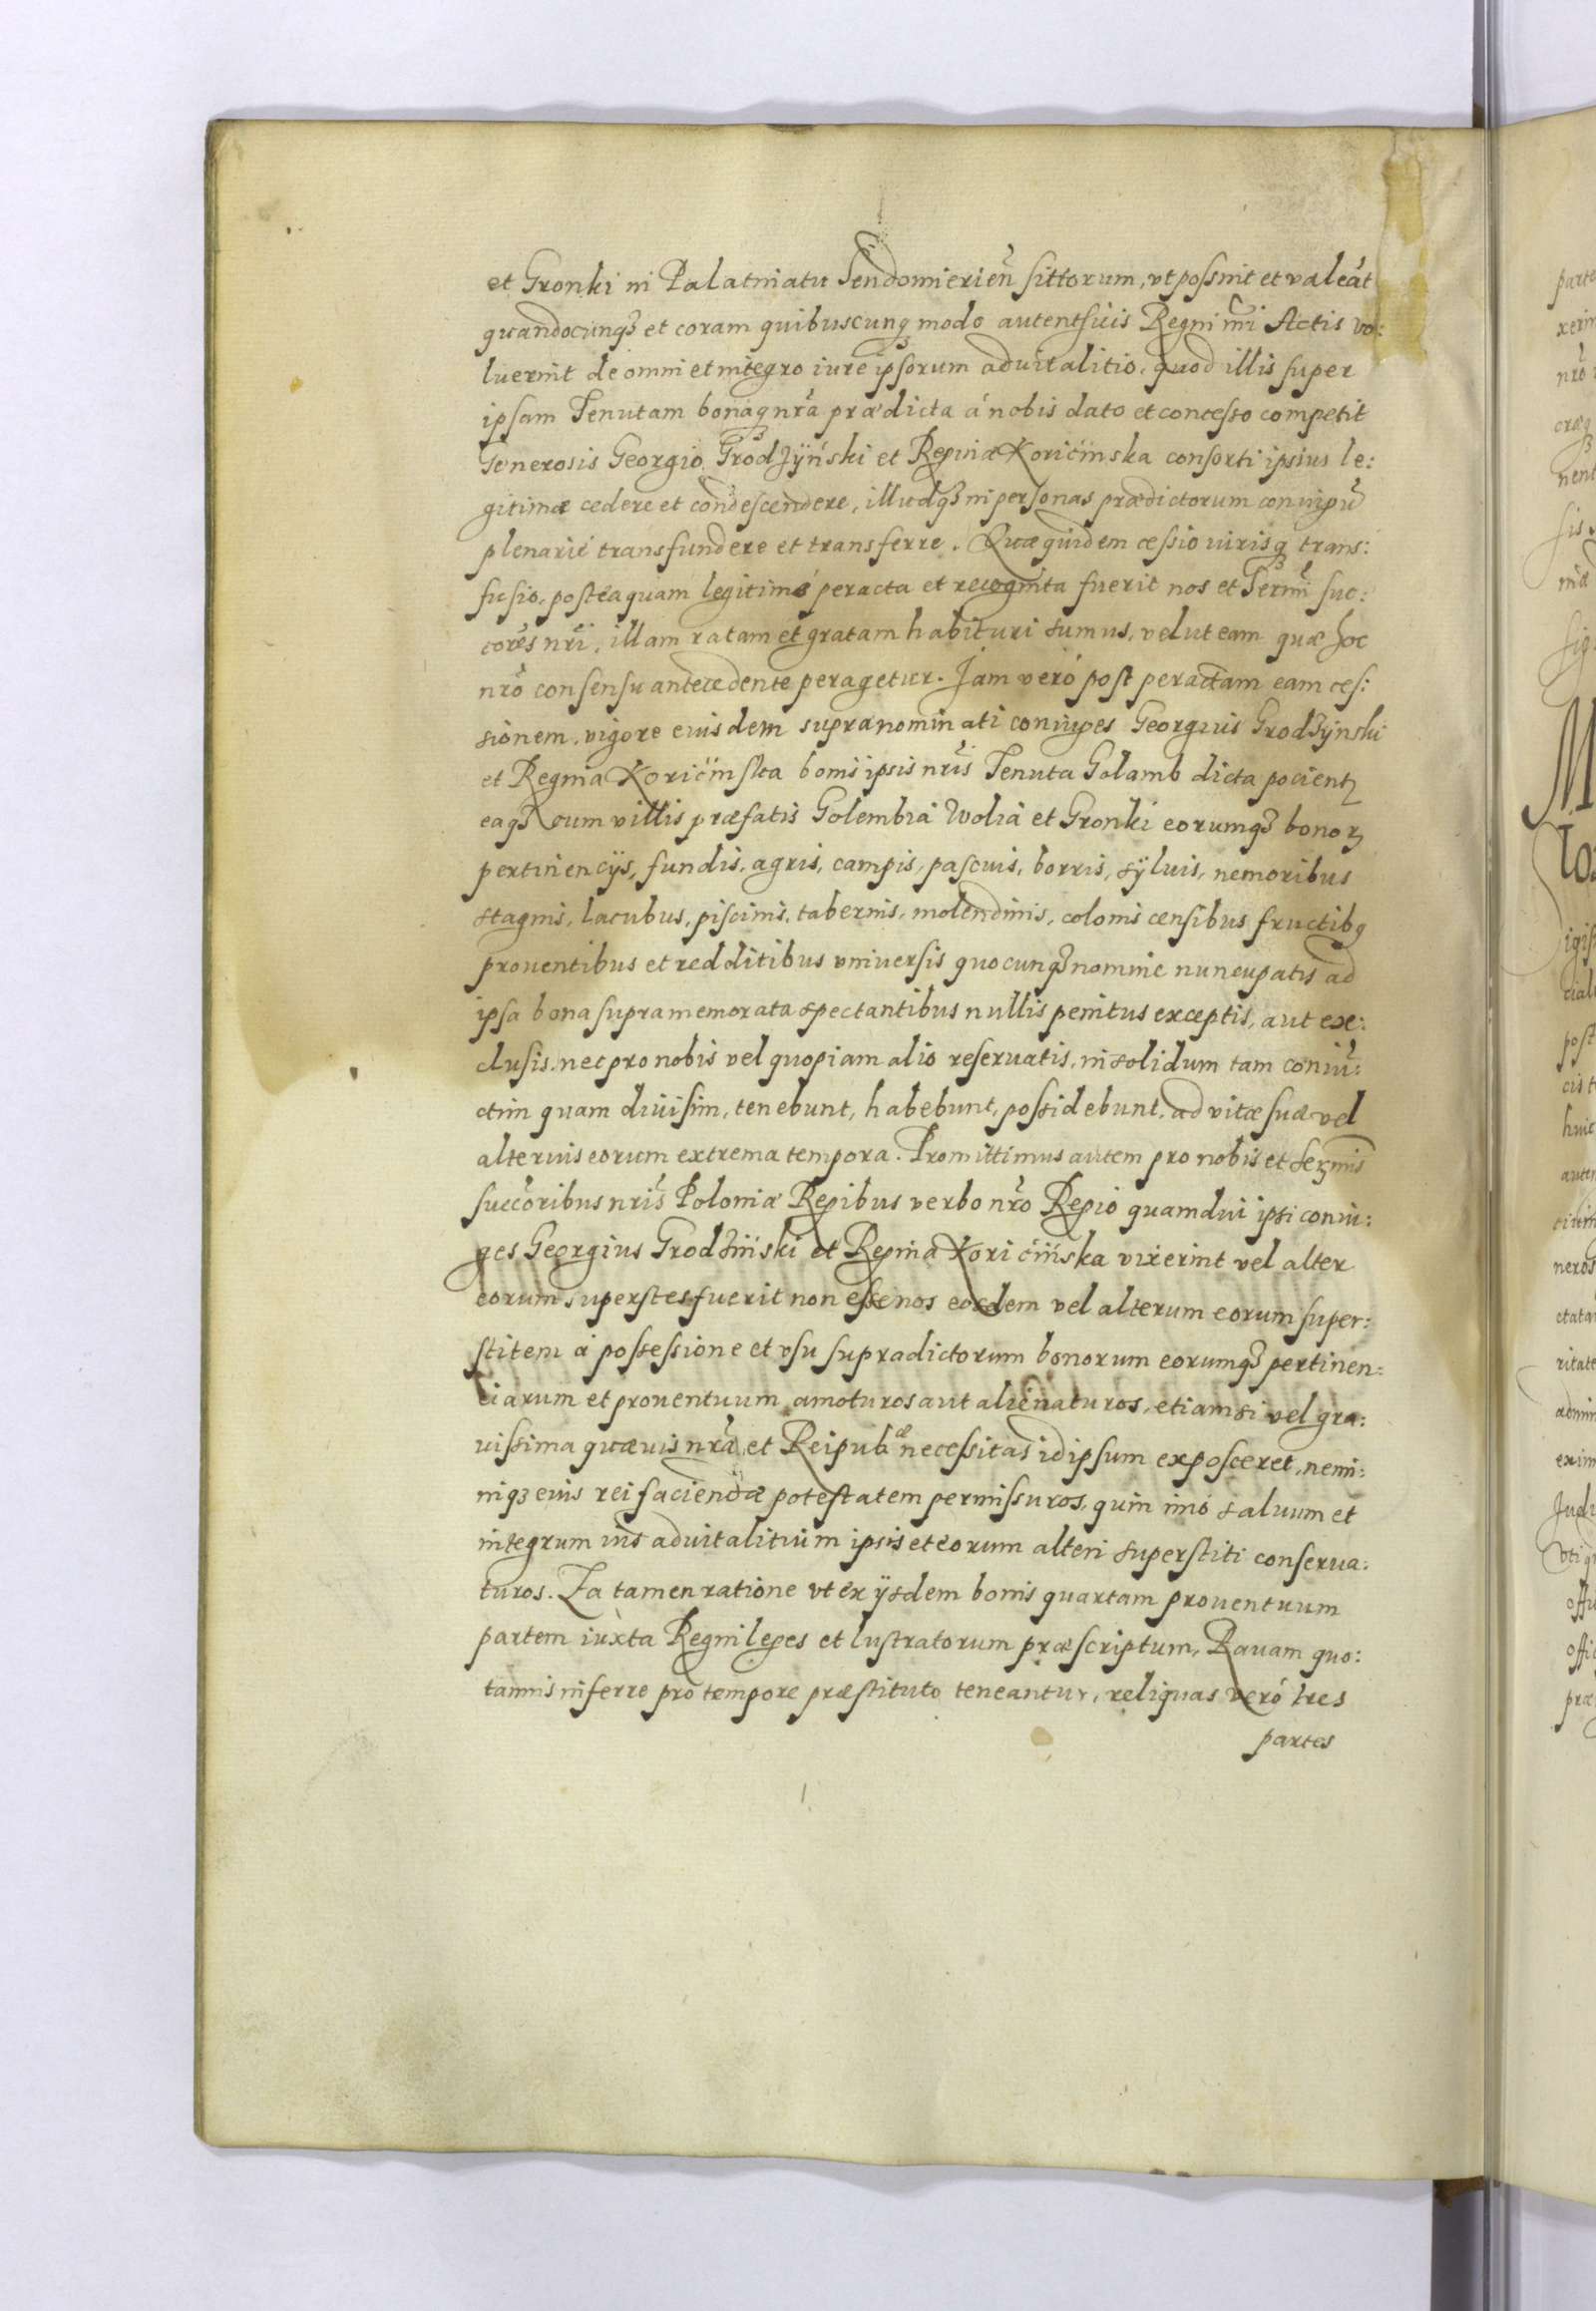 et Gronki in Palatinatu Sendomierień sittorum, vt possint et valeãt
quandocunqȝ et coram quibuscunqȝ modo autentsuis Regni nr̃i Actis vo:
luerint de omni et integro iure ipsorum aduitalitio, quod illis super
ipsam Tenutam bonaqȝ nr̃a prædicta á nobis dato et concesso competit
Generosis Georgio Grodzÿński et Reginæ Korićinska consorti ipsius le:
gitimæ cedere et condescendere, illudqȝ in personas prædictorum coniugũ
plenarié transfundere et transferre. Quæquidem cessio iurisqȝ trans:
fusio, posteaquam legitimé peracta et recognita fuerit nos et Sermi suc:
cores nri, illam ratam et gratam habituri sumus, velut eam quæ hoc
nrõ consensu antecedente peragetur. Jam veró post peractam eam ces:
sionem, vigore eiusdem supranominati coniuges Georgius Grodzÿnski
et Regina Korićinska bonis ipsis nris Tenuta Golamb dicta pocientꝫ
eaqȝ cum villis præfatis Golembia Wolia et Gronki eorumqȝ bonoꝝ
pertinencÿs, fundis, agris, campis, pascuis, borris, sÿluis, nemoribus
stagnis, lacubus, piscinis, tabernis, molendinis, colonis censibus fructibꝯ
prouentibus et redditibus vniuersis quocunqȝ nomine nuncupatis ad
ipsa bona supramemorata spectantibus nullis penitus exceptis, aut ex:
clusis, nec pro nobis vel quopiam alio reseruatis, in solidum tam coniũ:
ctim quam diuisim, tenebunt, habebunt, possidebunt, ad vitæ suæ vel
alterius eorum extrema tempora. Promittimus autem pro nobis et serꝫmis
succoribus nris Poloniæ Regibus verbo nrõ Regio quamdiu ipsi coniu:
ges Georgius Grodziński et Regina Korićińska vixerint vel alter
eorum superstes fuerit non esse nos eosdem vel alterum eorum super:
stitem á possessione et vsu supradictorum bonorum eorumqȝ pertinen:
ciarum et prouentuum amoturos aut alienaturos, etiamsi vel gra:
uissima quæuis nrã et Reipub.æ necessitas id ipsum exposceret, nemi:
niqȝ eius rei faciendæ potestatem permissuros, quin imó saluum et
integrum ius aduitalitium ipsis et eorum alteri superstiti conserua:
turos. Ea tamen ratione vt ex ÿsdem bonis quartam prouentuum
partem iuxta Regni leges et lustratorum præscriptum, Rauam quo:
tannis inferre pro tempore præstituto teneantur, reliquas veró tres
partes